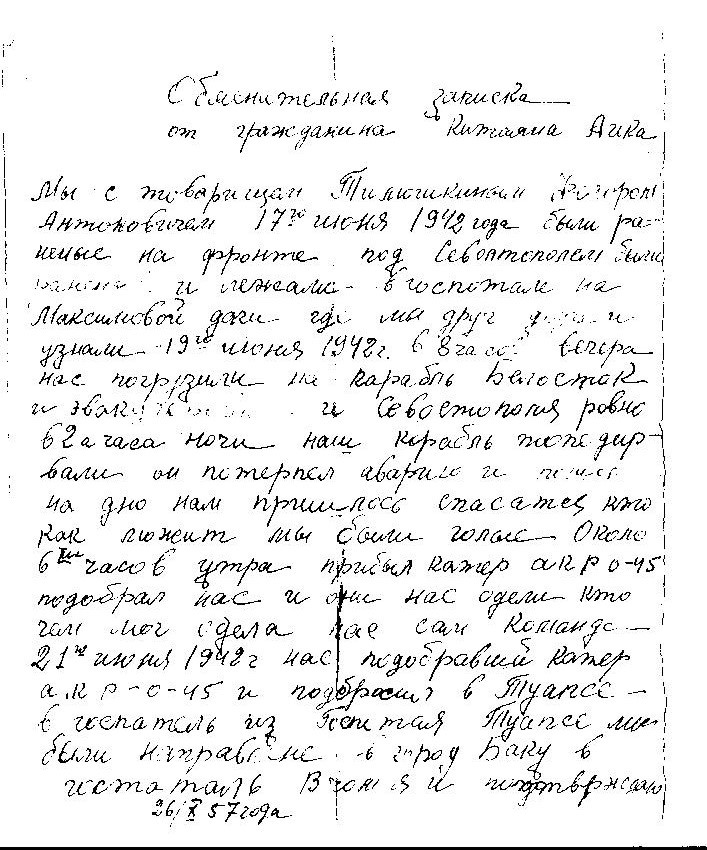 Обменительная записка
от гражданина Китаяна Аика
Мы с товарищам Тимошкиным
Антоновичем 17го июня 1942 года были ра-
неные на фронте под Севостополем были
и лежали в госпотале на
Максимовой даги где мы друг и
узнали 19го июня 1942г. в 8 часов вечера
нас погрузили на карабль Белосток
и Севостополя ровно
в 2а часа ночи наш корабль топедир-
вали он потерпел аварию и
на дно нам пришлось спасатся кто
как можит мы были голые Около
6ти часов утра прибыл катер акр 0-45
подобрал нас и они нас одели кто
чем мог одела нас сам команда
21го июня 1942г нас подобравший катер
акр-0-45 и подбросил в Туапсе
в госпатель из Госпиталя Туапсе мы
были направлене в город Баку в
госпоталь В чом я и подтверждаю
26/X 57 года